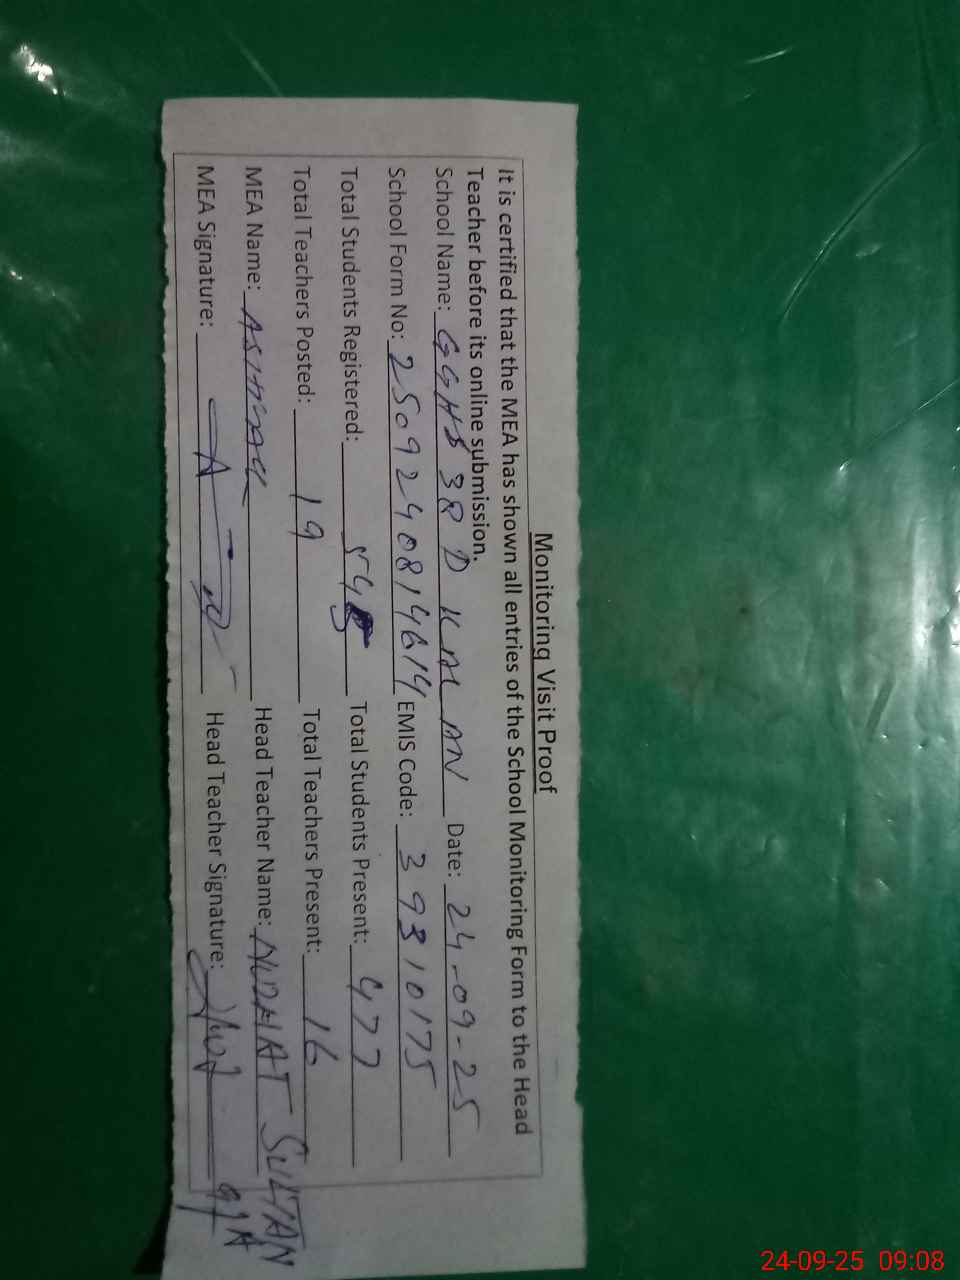 Monitoring Visit Proof
It is certified that the MEA has shown all entries of the School Monitoring Form to the Head
Teacher before its online submission.
School Name: GGHS 38 D KALAN Date: 24-09-25
School Form No: 2509240814614 EMIS Code: 39310175
Total Students Registered: 545 Total Students Present: 477
Total Teachers Posted: 19 Total Teachers Present: 16
MEA Name: Head Teacher Name: NUZHAT SULTAN
MEA Signature: Head Teacher Signature:
24-09-25 09:08